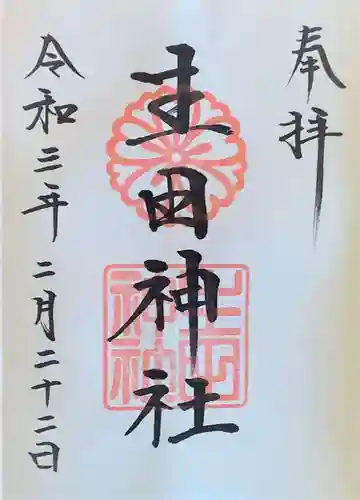 奉拝
生田神社
令和三年二月二十二日